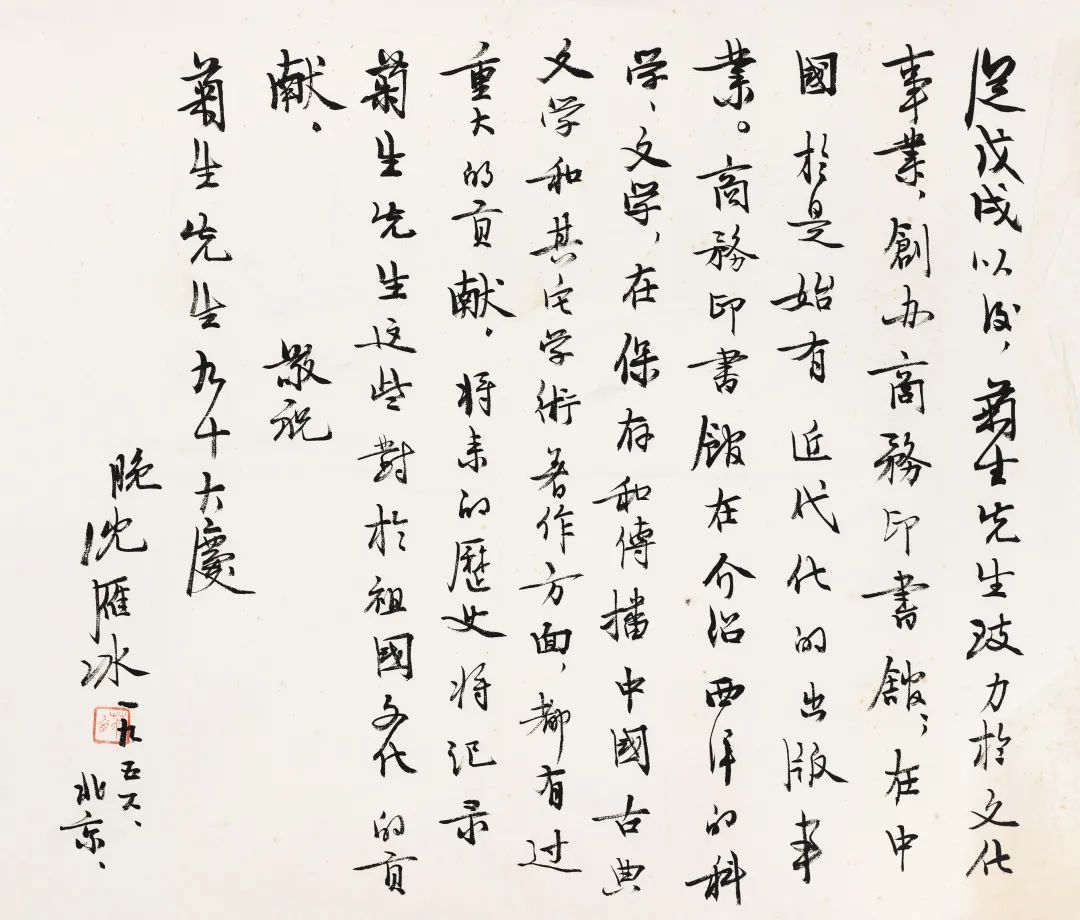 從戊戌以後，菊生先生致力於文化
事業，創办商務印書館，在中
國於是始有近代化的出版事
業。商務印書館在介紹西洋的科
学、文学，在保存和傳播中國古典
文学和其它学術著作方面，都有过
重大的貢献。将来的歷史将记录
菊生先生这些對於祖國文化的貢
献。
敬祝
菊生先生九十大慶
晚沈雁冰
一九五六、
北京、